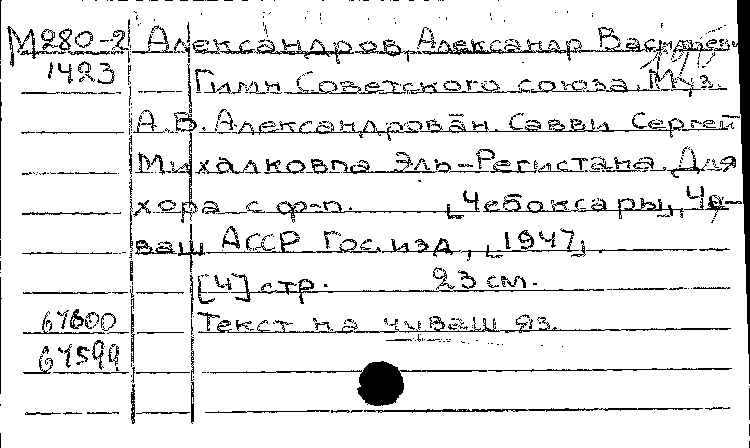 М280-2 Александров, Александр Васильевич
1423 Гимн Советского союза. Муз.
А.В. Александрован. Савви Сергей
Михалковпа Эль-Регистана. Для
хора с ф-п. [Чебоксары], Чу-
ваш АССР Гос. изд, [1947].
[4] стр. 23 см.
67600 Текст на чуваш яз.
67599